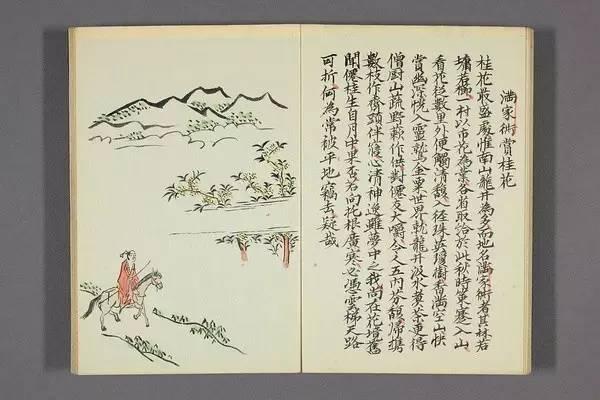 滿家衖賞桂花
桂花最盛處惟南山龍井為多而地名滿家衖者其林若
墉若櫛一村以市花為業各省取給於此秋時策蹇入山
看花從數里外便觸清馥入徑珠英瓊樹香滿空山快
賞幽深恍入靈鷲金粟世界就龍井汲水煮茶更得
僧厨山蔬野蔌作供對僊友大嚼令人五內芬馥歸攜
數枝作齋頭伴寢心清神逸雖夢中之我尚在花境舊
聞僊桂生自月中果否若向托根廣寒必憑雲梯天路
可折何為常被平地竊去疑哉